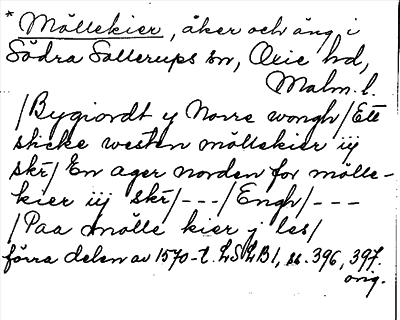 * Möllekier, åker och äng i
Södra Sallerups sn, Oxie hd,
Malm. l.
/Bygiordt y Norre wongh/Ett
sticke westen möllekier iij
skr/ En ager norden for mölle-
kier iij skr/---/Engh/---
/Paa mölle kier j les/
förra delen av 1570-t. LSLB1, ss. 396, 397.
orig.